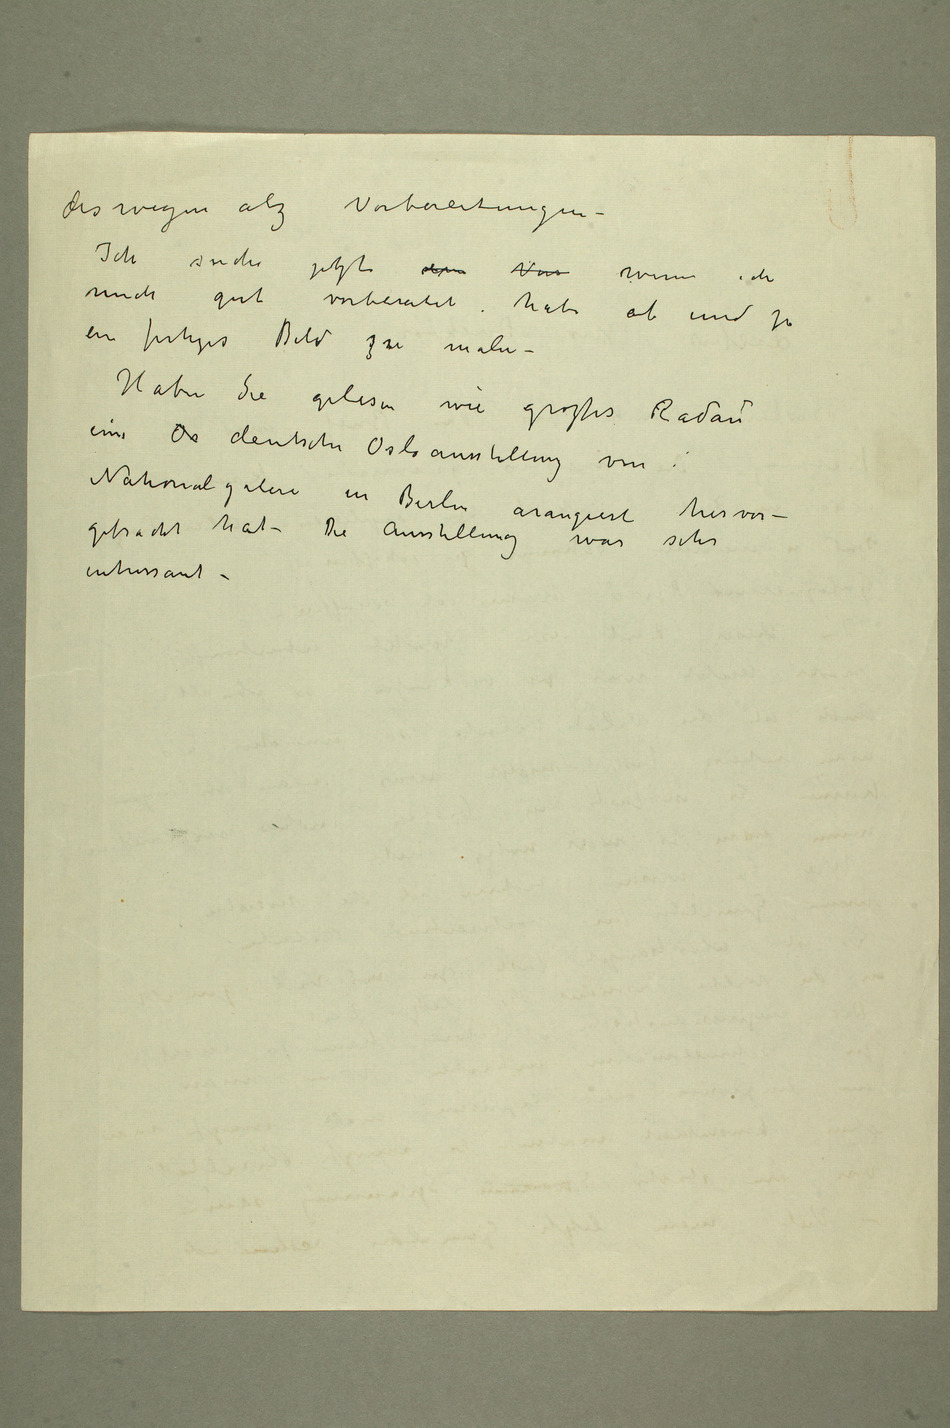 deswegen alz Vorbereitungen –
Ich suche jetzt wenn ich
mich gut vorbereitet habe ab und zu
ein fertiges Bild zu malen –
Haben Sie gelesen wie grozses Radaú
eine Os deutsche Osloausstellung von
Nationalgalerie in Berlin arangiert hervor–
gebracht hat – Die Ausstellung war sehr
intressant –